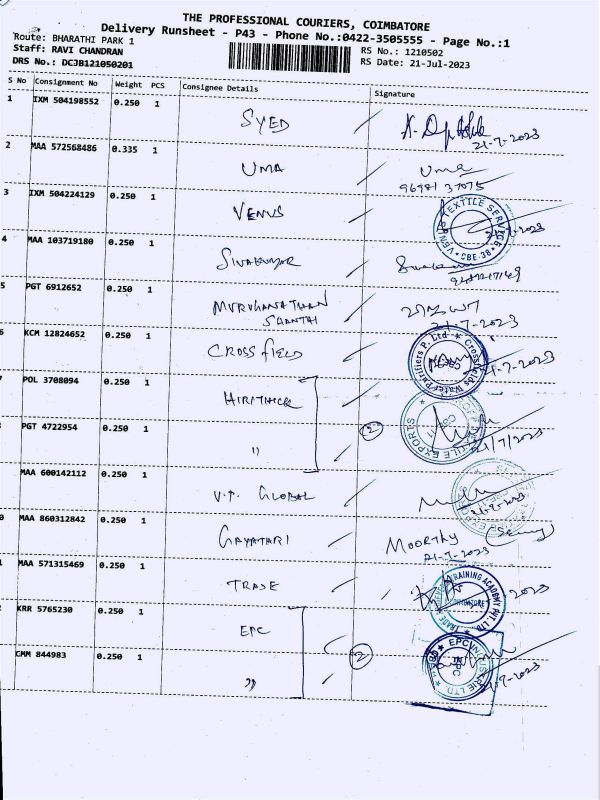 THE PROFESSIONAL COURIERS, COIMBATORE
Delivery Runsheet - P43 - Phone No.:0422-3505555 - Page No.:1
Route: BHARATHI PARK 1
Staff: RAVI CHANDRAN
DRS No.: DCJB121050201
RS No.: 1210502
RS Date: 21-Jul-2023
S No Consignment No Weight PCS Consignee Details Signature
1 IXM 504198552 0.250 1 SYED 21-7-2023
2 MAA 572568486 0.335 1 UMA Uma
96981 37075
3 IXM 504224129 0.250 1 VENUS VENUS TEXTILE SERVICE CBE-38
4 MAA 103719180 0.250 1 SIVAKUMAR
5 PGT 6912652 0.250 1 MURUGANATHAN
21-7-2023
KCM 12824652 0.250 1 CROSSFIELD Crossfields Water Purifiers P. Ltd
POL 3708094 0.250 1
PGT 4722954 0.250 1 " 2 21/7/2023
MAA 600142112 0.250 1 V.P. GLOBAL 21-7-2023
0 MAA 860312842 0.250 1 GAYATARI MOORTHY
21-7-2023
MAA 571315469 0.250 1 TRADE TRAINING ACADEMY PVT. LTD
KRR 5765230 0.250 1 EPC
CMM 844983 0.250 1 " 2 EPC
21-7-2023